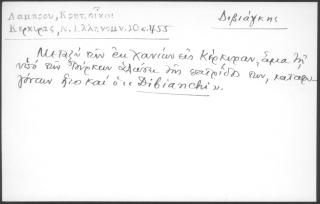 Λάμπρου, Κρητ. οἶκοι
Διβιάγκης
Κερκύρας, Ν. Ἑλληνομν. 10 σ. 455
Μεταξὺ τῶν ἐκ Χανίων εἰς Κέρκυραν, ἅμα τῇ
ὑπὸ τῶν Τούρκων ἁλώσει τῆς πατρίδος των, καταφυ
γόντων ἦτο καὶ ὁ "Dibianchi".